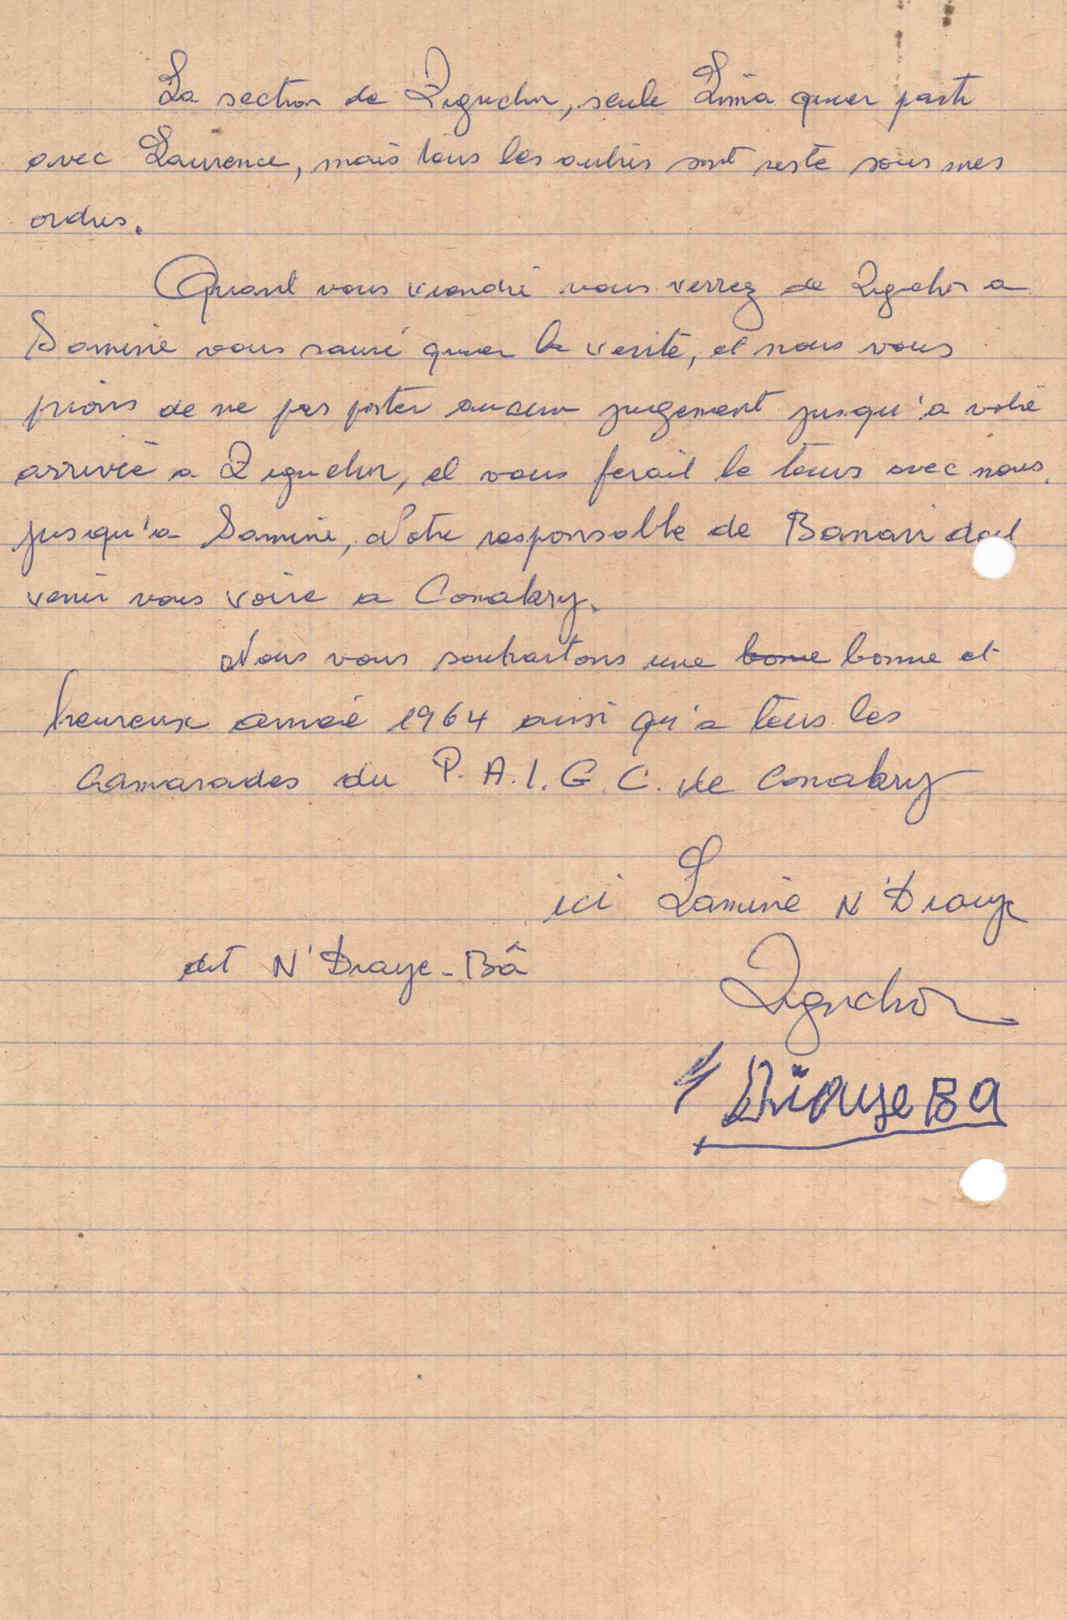 La section de Ziguchor, seule Lima quer parti
avec Laurence, mais tous les autris sont reste sous mes
ordres.
Quant vous viendré vous verrez de Ziguchor a
Samine vous sauré quer la verité, et nous vous
prions de ne pas porter aucun jugement jusqu'a votré
arriveé a Ziguchor, et vous ferait le tours avec nous,
jusqu'a Samine, Notre responsable de Banan doit
venir vous voire a Conakry.
Nous vous souhaitons une bone bonne et
heureuse anneé 1964 ainsi qu'a tous les
Camarades du P.A.I.G.C. de Conakry
ici Lamine N'Diaye
dit N'Diaye-Bâ
Ziguchor
Diaye Ba